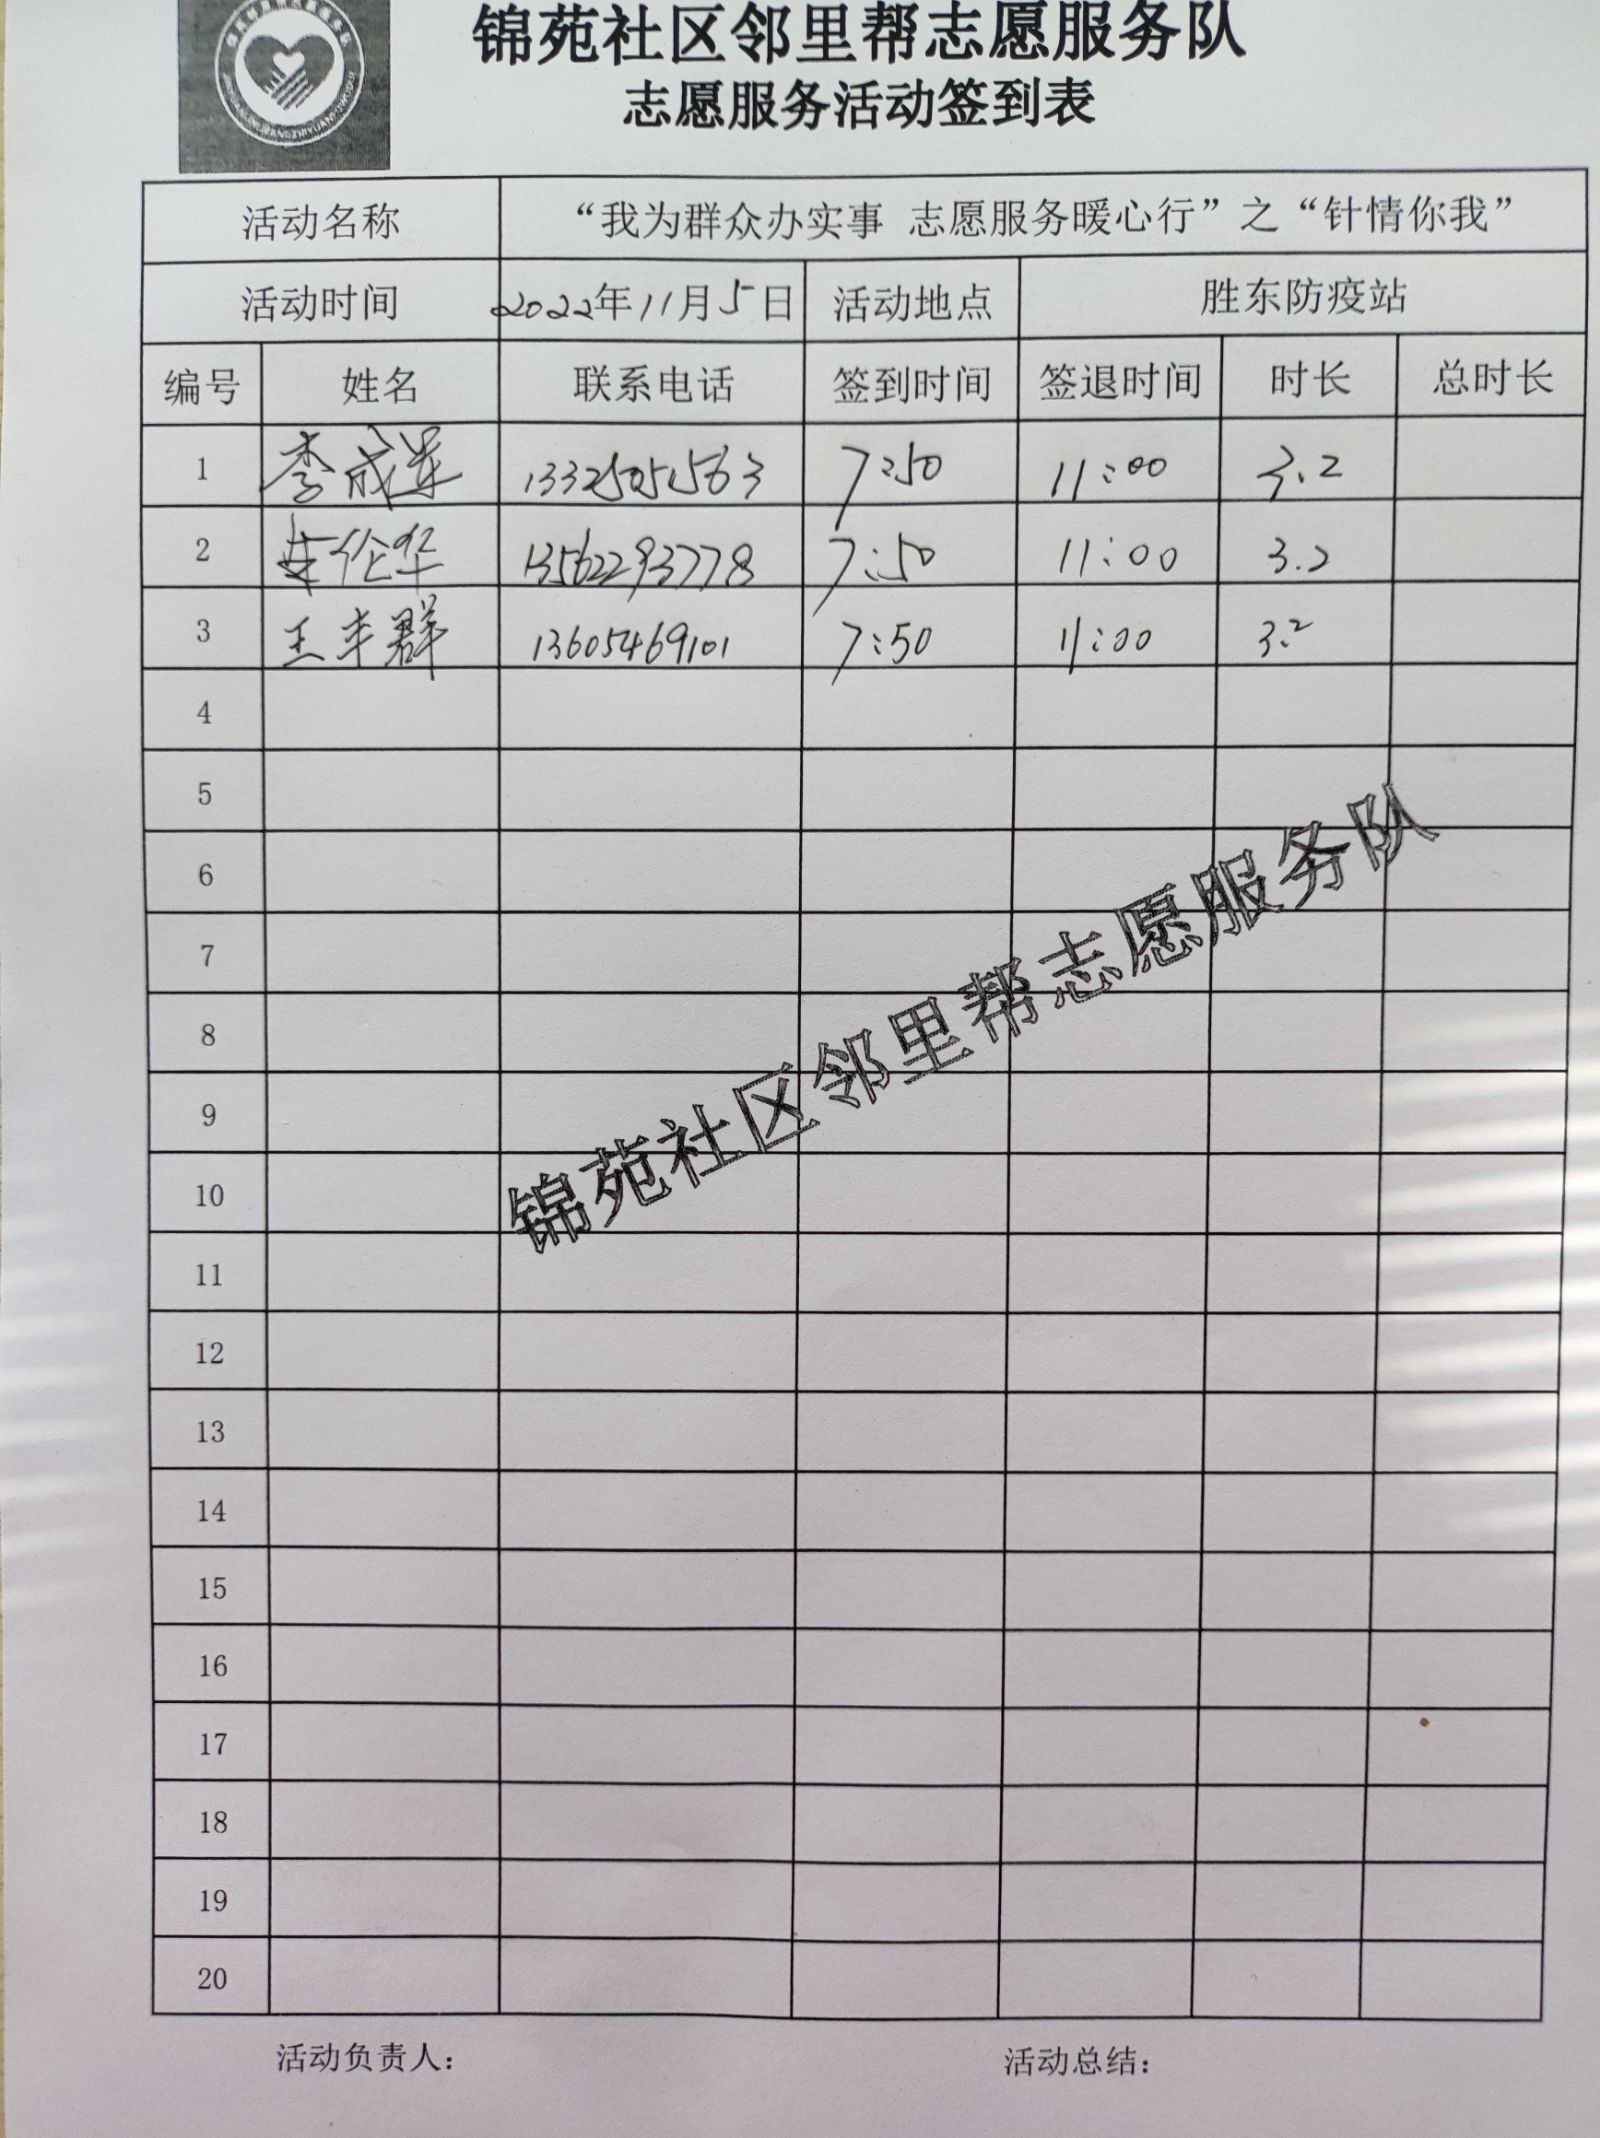 锦苑社区邻里帮志愿服务队
志愿服务活动签到表
活动名称 “我为群众办实事 志愿服务暖心行”之“针情你我”
活动时间 2022年11月5日 活动地点 胜东防疫站
编号 姓名 联系电话 签到时间 签退时间 时长 总时长
1 李成军 13325051563 7:50 11:00 3.2
2 伦华 13562293778 7:50 11:00 3.2
3 王丰群 13605469101 7:50 11:00 3.2
4
5
6
7
8
9
10
11
12
13
14
15
16
17
18
19
20
锦苑社区邻里帮志愿服务队
活动负责人： 活动总结：